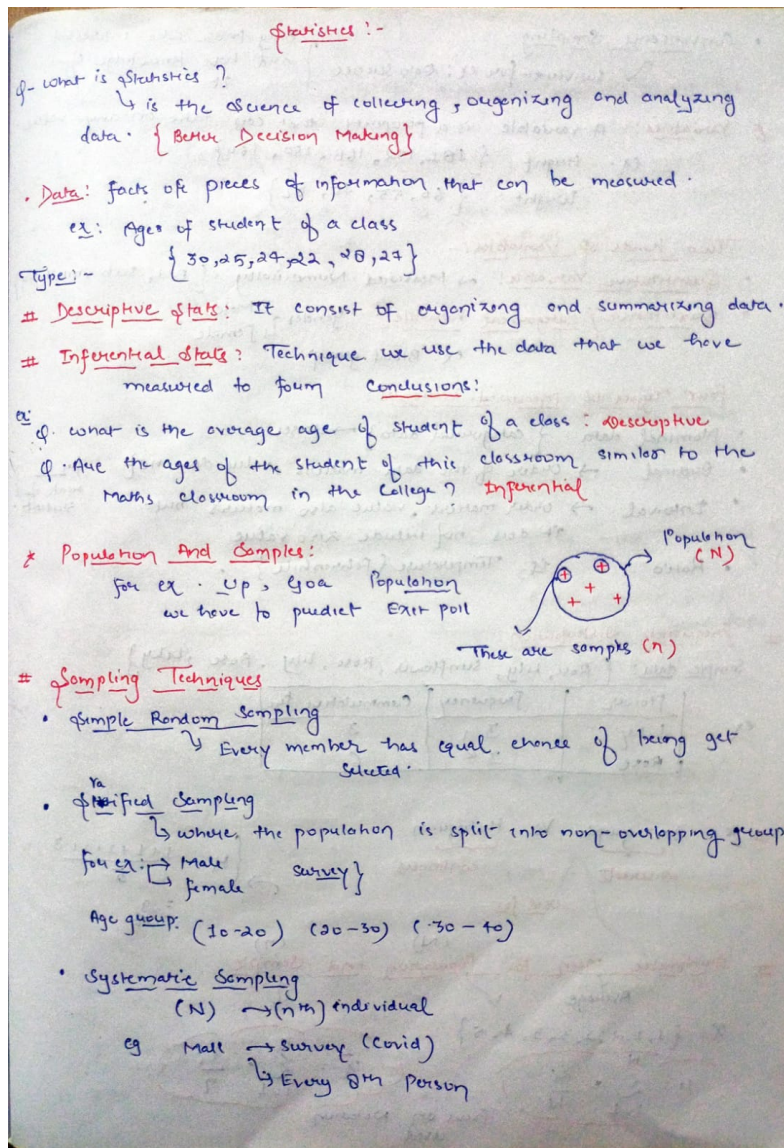 Statistics :-
Q- what is Statistics ?
↳ is the science of collecting, organizing and analyzing
data. { Better Decision Making }
• Data: facts of pieces of information that can be measured.
ex: Ages of student of a class
{ 30, 25, 24, 22, 28, 27 }
Type:-
# Descriptive Stats: It consist of organizing and summarizing data.
# Inferential Stats: Technique we use the data that we have
measured to form Conclusions:
ex:
Q. what is the average age of student of a class : Descriptive
Q. Are the ages of the student of this classroom similar to the
Maths classroom in the College? Inferential
* Population And Samples:
for ex. Up, Goa Population
we have to predict Exit poll
Population
(N)
These are samples (n)
# Sampling Techniques
• Simple Random Sampling
↳ Every member has equal chance of being get
selected.
• Stratified Sampling
↳ where, the population is split into non-overlapping group
for ex: → Male
→ female survey }
Age group: (10-20) (20-30) (30-40)
• Systematic Sampling
(N) → (nth) individual
eg Mall → survey (Covid)
↳ Every 8th Person